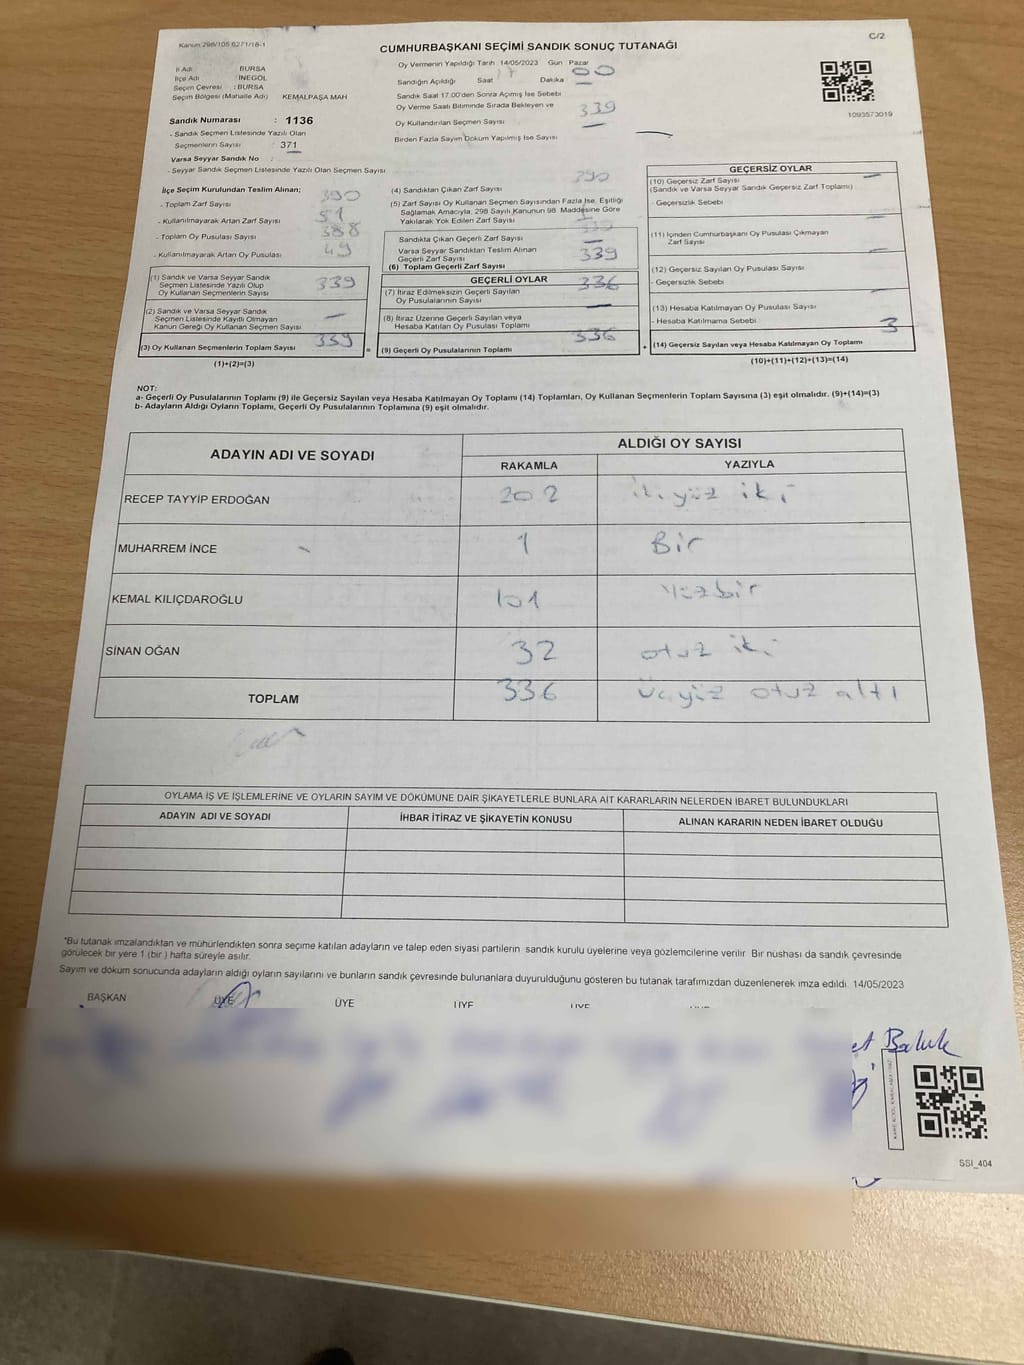 Kanun:298/105 6271/18-1
CUMHURBAŞKANI SEÇİMİ SANDIK SONUÇ TUTANAĞI
C/2
İl Adı BURSA
İlçe Adı İNEGÖL
Seçim Çevresi : BURSA
Seçim Bölgesi (Mahalle Adı) KEMALPAŞA MAH
Sandık Numarası : 1136
- Sandık Seçmen Listesinde Yazılı Olan
Seçmenlerin Sayısı 371
Varsa Seyyar Sandık No :
- Seyyar Sandık Seçmen Listesinde Yazılı Olan Seçmen Sayısı
Oy Vermenin Yapıldığı Tarih 14/05/2023 Gün Pazar
Sandığın Açıldığı Saat 17 Dakika 00
Sandık Saat 17.00'den Sonra Açımış İse Sebebi
Oy Verme Saati Bitiminde Sırada Bekleyen ve
Oy Kullandırılan Seçmen Sayısı 339
Birden Fazla Sayım Döküm Yapılmış İse Sayısı
1093573019
İlçe Seçim Kurulundan Teslim Alınan;
- Toplam Zarf Sayısı 390
- Kullanılmayarak Artan Zarf Sayısı 51
- Toplam Oy Pusulası Sayısı 388
- Kullanılmayarak Artan Oy Pusulası 49
(1) Sandık ve Varsa Seyyar Sandık
Seçmen Listesinde Yazılı Olup
Oy Kullanan Seçmenlerin Sayısı 339
(2) Sandık ve Varsa Seyyar Sandık
Seçmen Listesinde Kayıtlı Olmayan
Kanun Gereği Oy Kullanan Seçmen Sayısı
(3) Oy Kullanan Seçmenlerin Toplam Sayısı 339
(1)+(2)=(3)
(4) Sandıktan Çıkan Zarf Sayısı 390
(5) Zarf Sayısı Oy Kullanan Seçmen Sayısından Fazla İse, Eşitliği
Sağlamak Amacıyla, 298 Sayılı Kanunun 98. Maddesine Göre
Yakılarak Yok Edilen Zarf Sayısı
Sandıkta Çıkan Geçerli Zarf Sayısı
Varsa Seyyar Sandıktan Teslim Alınan
Geçerli Zarf Sayısı
(6) Toplam Geçerli Zarf Sayısı 339
GEÇERLİ OYLAR
(7) İtiraz Edilmeksizin Geçerli Sayılan
Oy Pusulalarının Sayısı 336
(8) İtiraz Üzerine Geçerli Sayılan veya
Hesaba Katılan Oy Pusulası Toplamı
(9) Geçerli Oy Pusulalarının Toplamı 336
GEÇERSİZ OYLAR
(10) Geçersiz Zarf Sayısı
(Sandık ve Varsa Seyyar Sandık Geçersiz Zarf Toplamı)
- Geçersizlik Sebebi
(11) İçinden Cumhurbaşkanı Oy Pusulası Çıkmayan
Zarf Sayısı
(12) Geçersiz Sayılan Oy Pusulası Sayısı
- Geçersizlik Sebebi
(13) Hesaba Katılmayan Oy Pusulası Sayısı
- Hesaba Katılmama Sebebi
(14) Geçersiz Sayılan veya Hesaba Katılmayan Oy Toplamı 3
(10)+(11)+(12)+(13)=(14)
NOT:
a- Geçerli Oy Pusulalarının Toplamı (9) ile Geçersiz Sayılan veya Hesaba Katılmayan Oy Toplamı (14) Toplamları, Oy Kullanan Seçmenlerin Toplam Sayısına (3) eşit olmalıdır. (9)+(14)=(3)
b- Adayların Aldığı Oyların Toplamı, Geçerli Oy Pusulalarının Toplamına (9) eşit olmalıdır.
ADAYIN ADI VE SOYADI ALDIĞI OY SAYISI
RAKAMLA YAZIYLA
RECEP TAYYİP ERDOĞAN 202 ikiyüz iki
MUHARREM İNCE 1 Bir
KEMAL KILIÇDAROĞLU 101 Yüzbir
SİNAN OĞAN 32 otuz iki
TOPLAM 336 üçyüz otuz altı
OYLAMA İŞ VE İŞLEMLERİNE VE OYLARIN SAYIM VE DÖKÜMÜNE DAİR ŞİKAYETLERLE BUNLARA AİT KARARLARIN NELERDEN İBARET BULUNDUKLARI
ADAYIN ADI VE SOYADI İHBAR İTİRAZ VE ŞİKAYETİN KONUSU ALINAN KARARIN NEDEN İBARET OLDUĞU
"Bu tutanak imzalandıktan ve mühürlendikten sonra seçime katılan adayların ve talep eden siyasi partilerin sandık kurulu üyelerine veya gözlemcilerine verilir Bir nüshası da sandık çevresinde
görülecek bir yere 1 (bir ) hafta süreyle asılır.
Sayım ve döküm sonucunda adayların aldığı oyların sayılarını ve bunların sandık çevresinde bulunanlara duyurulduğunu gösteren bu tutanak tarafımızdan düzenlenerek imza edildi. 14/05/2023
BAŞKAN ÜYE ÜYE ÜYE ÜYE
Baluk
SSI_404